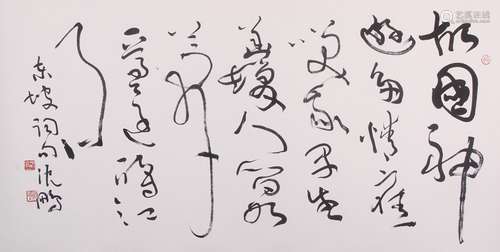 故国神
游多情应
笑我早生
华发人间如
梦
一尊还酹江
月
东坡词句沈鹏